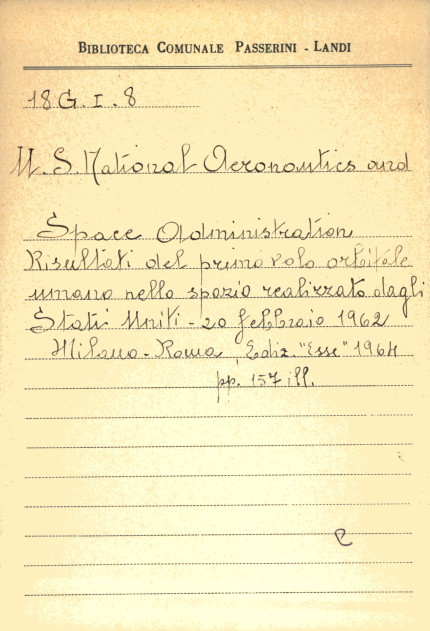 BIBLIOTECA COMUNALE PASSERINI - LANDI
18 G. I. 8
U. S. National Aeronautics and
Space Administration
Risultati del primo volo orbitale
umano nello spazio realizzato dagli
Stati Uniti - 20 febbraio 1962
Milano - Roma, Ediz. "Esse" 1964
pp. 157 ill.
e